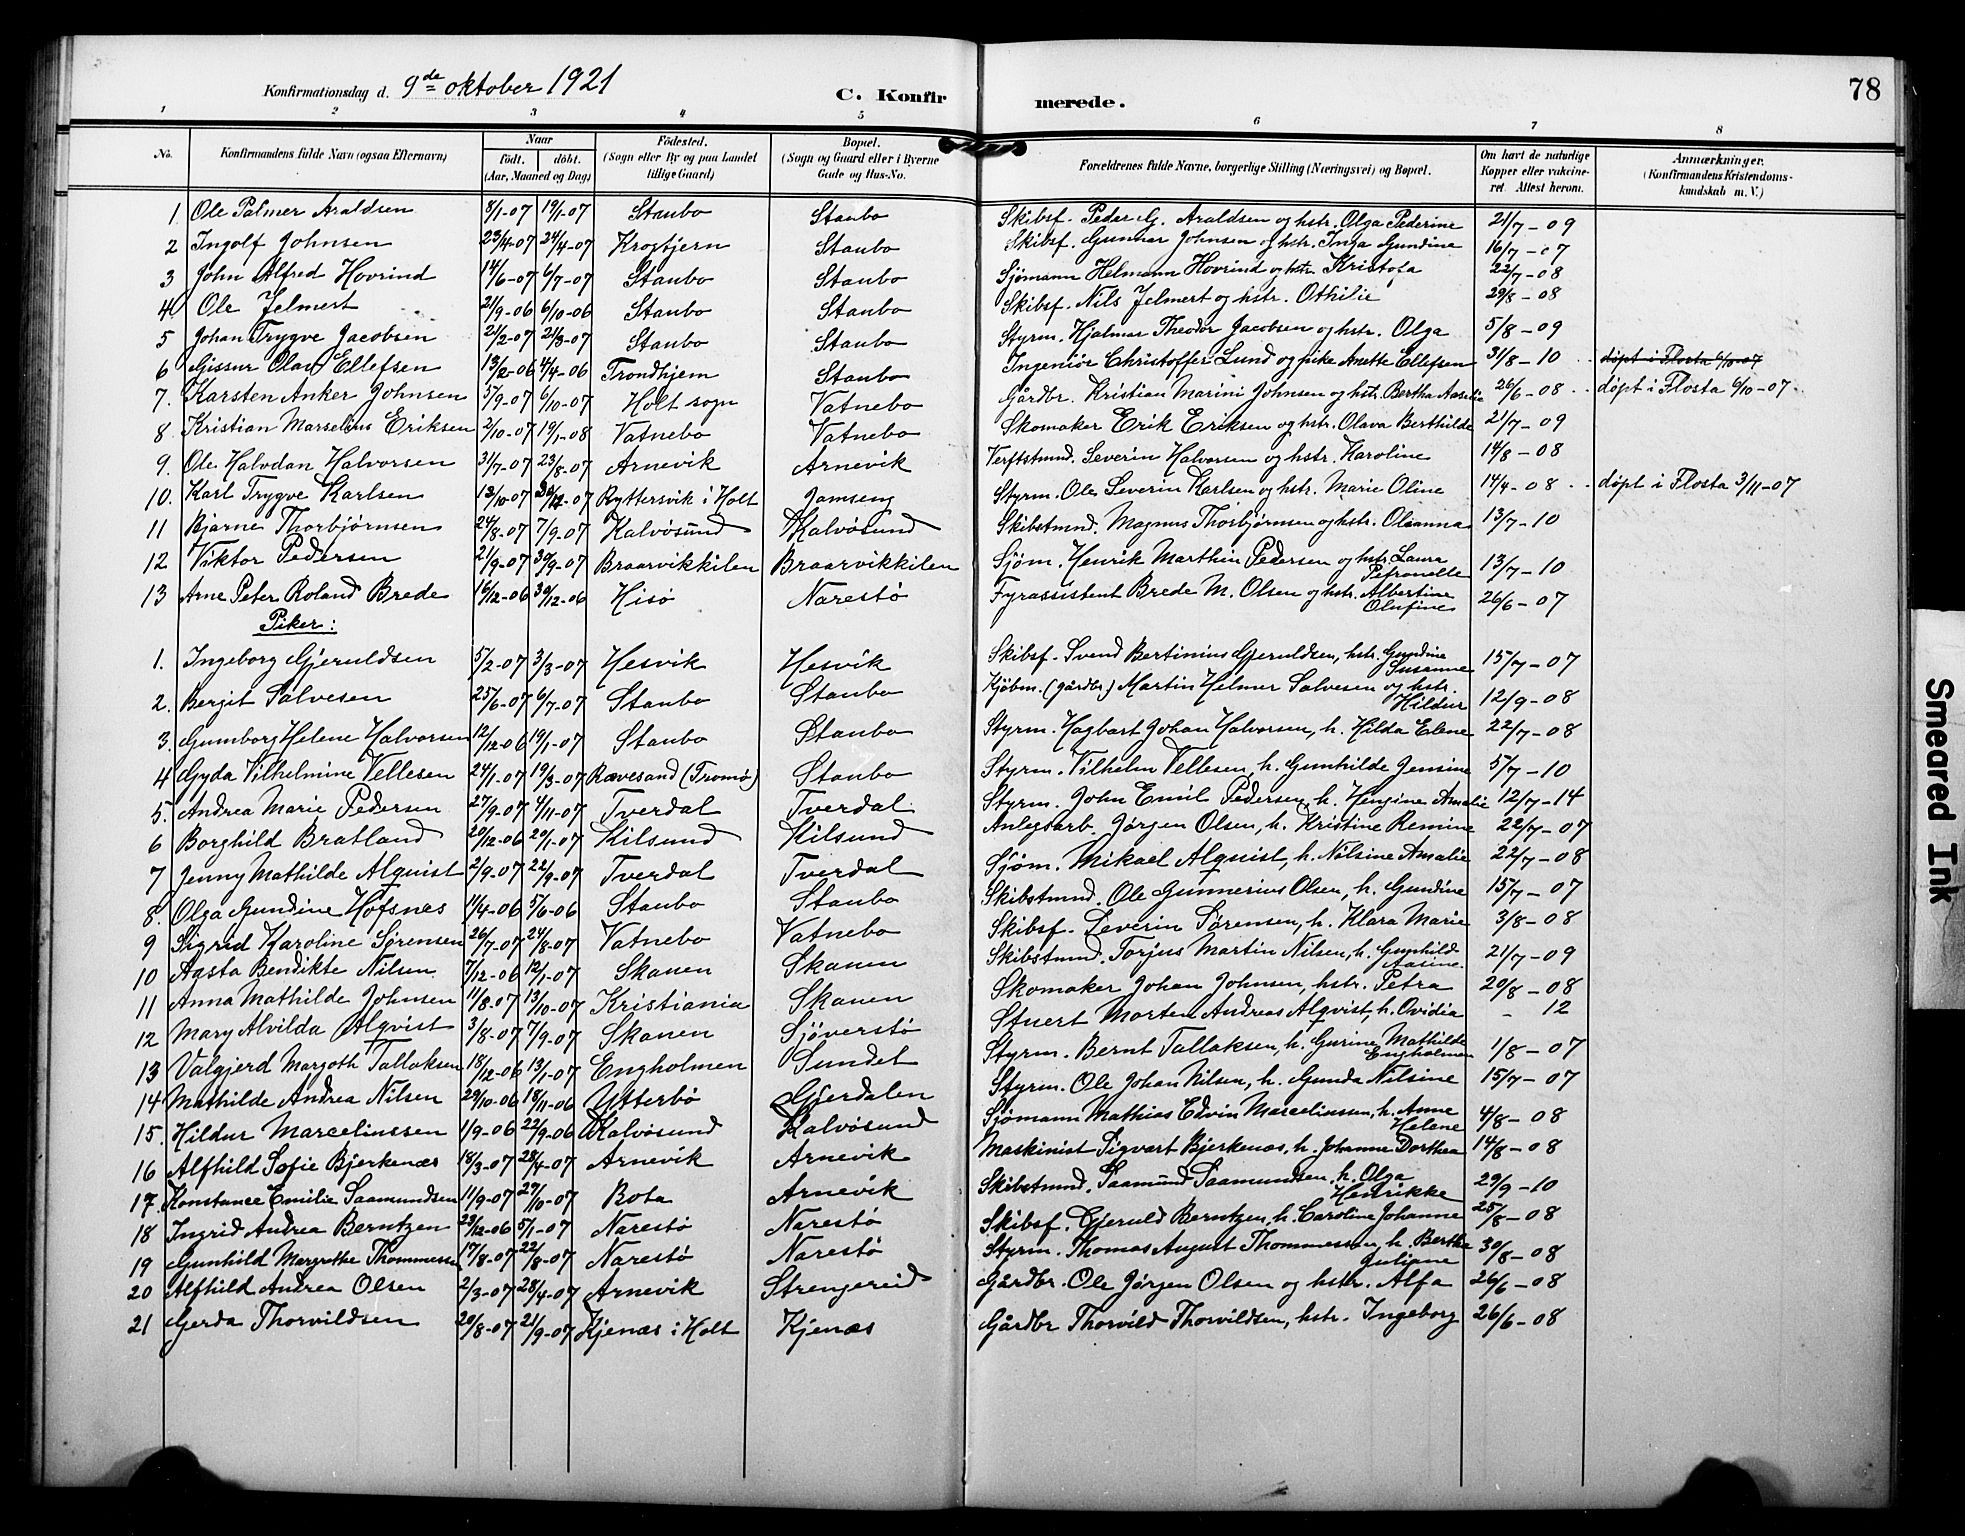 Konfirmationsdag d. 9de oktober 1921
C. Konfir merede.
78
1 2 3 4 5 6 7 8
No. Konfirmandens fulde Navn (ogsaa Efternavn) Naar født. døbt. (Aar, Maaned og Dag) Födested. (Sogn eller By og paa Landet tillige Gaard) Bopæl. (Sogn og Gaard eller i Byerne Gade og Hus-No. Forældrenes fulde Navne, borgerlige Stilling (Næringsvei) og Bopæl. Om havt de naturlige Kopper eller vakcineret. Attest herom. Anmærkninger. (Konfirmandens Kristendomskundskab m. V.)
1. Ole Palmer Araldsen 8/1-07 19/1-07 Staubo Staubo Skibsf. Peder G. Araldsen og hstr. Olga Pederine 21/7-09
2 Ingolf Johnsen 23/4-07 24/4-07 Krogtjern Staubo Skibsf. Gunnar Johnsen og hstr. Inga Gundine 16/7-07
3 John Alfred Hovrind 14/6-07 6/7-07 Staubo Staubo Sjømann Helmann Hovrind og hstr. Kristofa 22/7-08
4 Ole Jelmert 21/9-06 6/10-06 Staubo Staubo Skibsf. Nils Jelmert og hstr. Othilie 29/8-08
5 Johan Trygve Jacobsen 21/2-07 21/3-07 Staubo Staubo Styrm. Hjalmar Theodor Jacobsen og hstr. Olga 5/8-09
6 Gissur Olav Ellefsen 13/2-06 4/4-06 Trondhjem Staubo Ingeniør Christoffer Lund og pike Anette Ellefsen 31/8-10 døpt i Flosta 6/10-07
7. Karsten Anker Johnsen 5/9-07 6/10-07 Holt sogn Vatnebo Gårdbr. Kristian Marini Johnsen og hstr. Bertha Aaselie 26/6-08 døpt i Flosta 6/10-07
8 Kristian Marselius Eriksen 2/10-07 19/1-08 Vatnebo Vatnebo Skomaker Erik Eriksen og hstr. Olava Berthilde 21/7-09
9. Ole Halvdan Halvorsen 31/7-07 23/8-07 Arnevik Arnevik Verftstmd. Severin Halvorsen og hstr. Karoline 14/8-08
10. Karl Trygve Karlsen 13/10-07 Ryttersvik i Holt Jamseng Styrm. Ole Severin Karlsen og hstr. Marie Oline 14/4-08 døpt i Flosta 3/11-07
11 Bjarne Thorbjørnsen 24/8-07 7/9-07 Kalvøsund Kalvøsund Skibstmnd. Magnus Thorbjørnsen og hstr. Oleanna 13/7-10
12 Viktor Pedersen 21/9-07 30/9-07 Braarvikkilen Braarvikkilen Sjøm. Henrik Marthin Pedersen og hstr. Laura Petronelle 13/7-10
13 Arne Peter Roland Brede 16/12-06 30/12-06 Hisø Narestø Fyrassistent Brede M. Olsen og hstr. Albertine Olufine 26/6-07
Piker:
1. Ingeborg Gjeruldsen 5/2-07 3/3-07 Hesvik Hesvik Skibsf. Svend Bertinius Gjeruldsen, hstr. Gundine Susanne 15/7-07
2. Bergit Salvesen 25/6-07 6/7-07 Staubo Staubo Kjøbm. (gårdbr) Martin Helmer Salvesen og hstr. Hildur 12/9-08
3. Gumborg Helene Halvorsen 12/12-06 19/1-07 Staubo Staubo Styrm. Hagbart Johan Halvorsen, h. Hilda Elene 22/7-08
4 Gyda Vilhelmine Vellesen 24/1-07 19/3-07 Rævesand (Tromø) Staubo Styrm. Vilhelm Vellesen, h. Gunhilde Jensine 5/7-10
5. Andrea Marie Pedersen 27/9-07 4/11-07 Tverdal Tverdal Styrm. John Emil Pedersen, h. Hengine Amalie 12/7-14
6 Borghild Bratland 20/12-06 20/1-07 Kilsund Kilsund Anlegsarb. Jørgen Olsen, h. Kristine Remine 22/7-07
7 Jenny Mathilde Alquist 2/9-07 22/9-07 Tverdal Tverdal Sjøm. Mikael Alquist, h. Nilsine Amalie 22/7-08
8. Olga Gundine Hofsnes 11/4-06 5/6-06 Staubo Staubo Skibstmnd. Ole Gunnerius Olsen, h. Gundine 15/7-07
9 Sigrid Karoline Sørensen 26/7-07 24/8-07 Vatnebo Vatnebo Skibsf. Severin Sørensen, h. Klara Marie 3/8-08
10 Agsta Bendikte Nilsen 7/12-06 12/1-07 Skanen Skanen Skibstmnd. Torjus Martin Nilsen, h. Gunhild Aasine. 21/7-09
11 Anna Mathilde Johnsen 11/8-07 13/10-07 Kristiania Skanen Skomaker Johan Johnsen, hstr. Petra 20/8-08
12 Mary Alvilda Alqvist 3/8-07 7/9-07 Skanen Sjöverstø Stuert Morten Andreas Alqvist, h. Ovidia - 12
13 Valgjerd Margoth Tallaksen 18/12-06 13/1-07 Engholmen Sundet Styrm. Bernt Tallaksen, h. Gurine Mathilde Engholmen 1/8-07
14 Mathilde Andrea Nilsen 29/10-06 18/11-06 Ytterbø Gjerdalen Styrm. Ole Johan Nilsen, h. Gunda Nilsine 15/7-07
15. Hildur Marcelinssen 1/9-06 22/9-06 Kalvøsund Kalvøsund Sjømann Mathias Edvin Marcelinssen, h. Anne Helene 4/8-08
16 Alfhild Sofie Bjerkenæs 18/3-07 28/4-07 Arnevik Arnevik Maskinist Sigvart Bjerkenæs, h. Johanne Dorthea 14/8-08
17. Konstance Emilie Saamundsen 11/9-07 27/10-07 Bota Arnevik Skibstmnd. Saamund Saamundsen, h. Olga Henrikke 29/9-10
18 Ingrid Andrea Berntzen 23/12-06 5/1-07 Narestø Narestø Skibsf. Gjeruld Berntzen, h. Caroline Johanne 25/8-08
19 Gunhild Margrethe Thommesen 17/8-07 22/8-07 Narestø Narestø Styrm. Thomas August Thommesen h. Bertha Juliane 30/8-08
20 Alfhild Andrea Olsen 2/3-07 28/4-07 Arnevik Strengereid Gårdbr. Ole Jørgen Olsen og hstr. Alfa 26/6-08
21 Gerda Thorvildsen 20/8-07 21/9-07 Kjenæs i Holt Kjenæs Gårdbr Thorvild Thorvildsen, hstr. Ingeborg 26/6-08
Smeared Ink